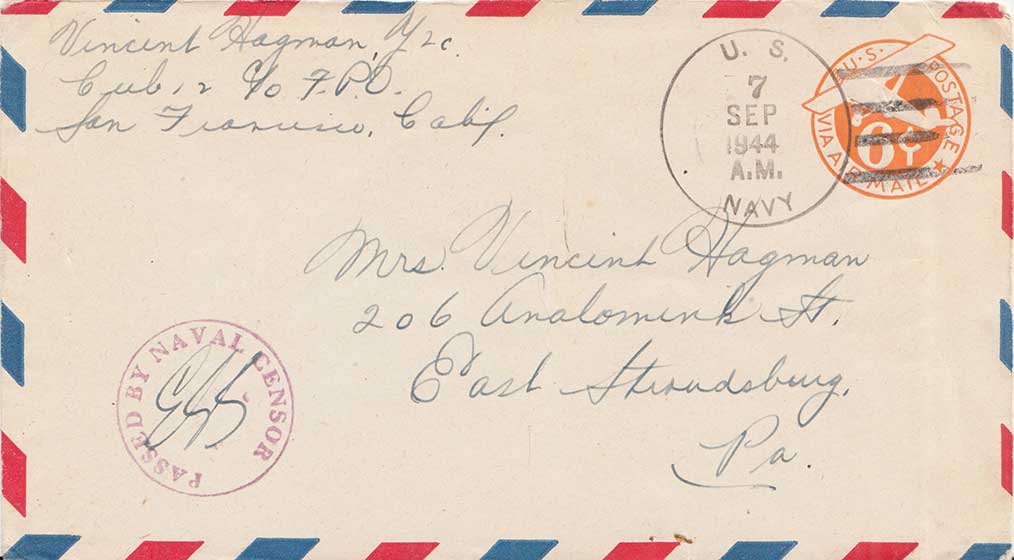 Vincent Hagman, Y2c.
Cub, 12 c/o F.P.O.
San Francisco, Calif.
U. S.
7
SEP
1944
A.M.
NAVY
U.S. POSTAGE
6¢
VIA AIR MAIL
Mrs. Vincent Hagman
206 Analomink St.
East Stroudsburg,
Pa.
PASSED BY NAVAL CENSOR